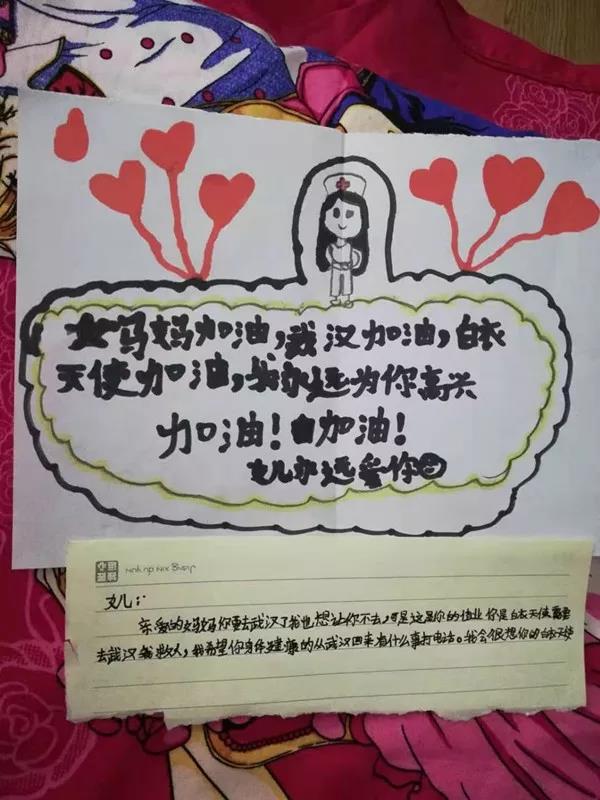 妈妈加油,武汉加油,白衣
天使加油,我永远为你高兴
加油!加油!
女儿永远爱你
女儿:
亲爱的妈妈你要去武汉了我也想让你不去,可是这是你的职业你是白衣天使需要
去武汉救人,我希望你身体健康的从武汉回来有什么事打电话。我会很想你的白衣天使